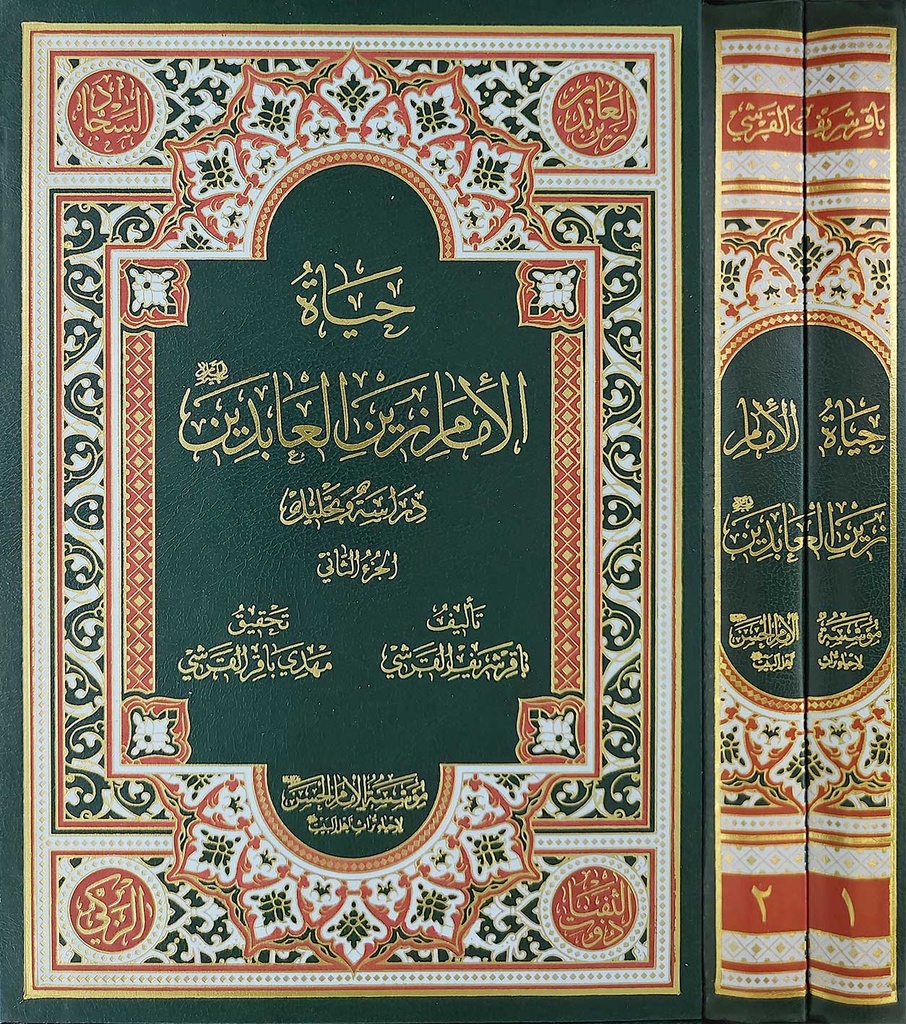 زين العابدين
السجاد
حياة
الإمام زين العابدين عليه السلام
دراسة وتحليل
الجزء الثاني
تأليف
باقر شريف القرشي
تحقيق
مهدي باقر القرشي
مؤسسة الإمام الحسن
لإحياء تراث أهل البيت
ذو الثفنات
الزكي
باقر شريف القرشي
حياة الإمام
زين العابدين
مؤسسة الإمام الحسن
لإحياء تراث أهل البيت
١
٢